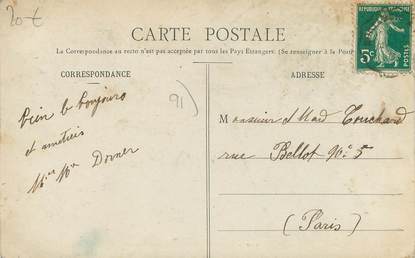 20 €
CARTE POSTALE
REPUBLIQUE FRANÇAISE
5c
POSTES
La Correspondance au recto n'est pas acceptée par tous les Pays Étrangers. (Se renseigner à la Poste
CORRESPONDANCE
ADRESSE
91)
bien le bonjours
et amitiés
Dorner
Monsieur et Mad Touchard
rue Bellot N° 5
(Paris)